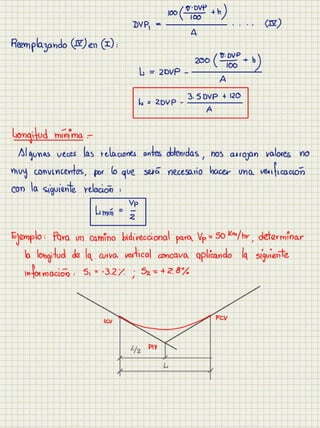 DVP₁ = 100 (σ·DVP/100 + h) / A .... (IV)
Reemplazando (IV) en (I):
L = 2DVP - 200 (σ·DVP/100 + h) / A
L = 2DVP - 3.5DVP + 120 / A
Longitud mínima :-
Algunas veces las relaciones antes obtenidas, nos arrojan valores no
muy convincentes, por lo que será necesario hacer una verificación
con la siguiente relación :
Lmín = Vp/2
Ejemplo: Para un camino bidireccional para Vp = 50 Km/hr, determinar
la longitud de la curva vertical concava aplicando la siguiente
información: S₁ = -3.2% ; S₂ = +2.8%
PCV
L/2
PIV
L